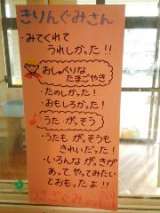 きりんぐみさん
・みてくれて
うれしかった!!
おしゃべりな
たまごやき
・たのしかった!
・おもしろかった!
うた がっそう
・うたも がっそうも
きれいだった!
・いろんな がっきが
あって やってみたい
とおもったよ!!